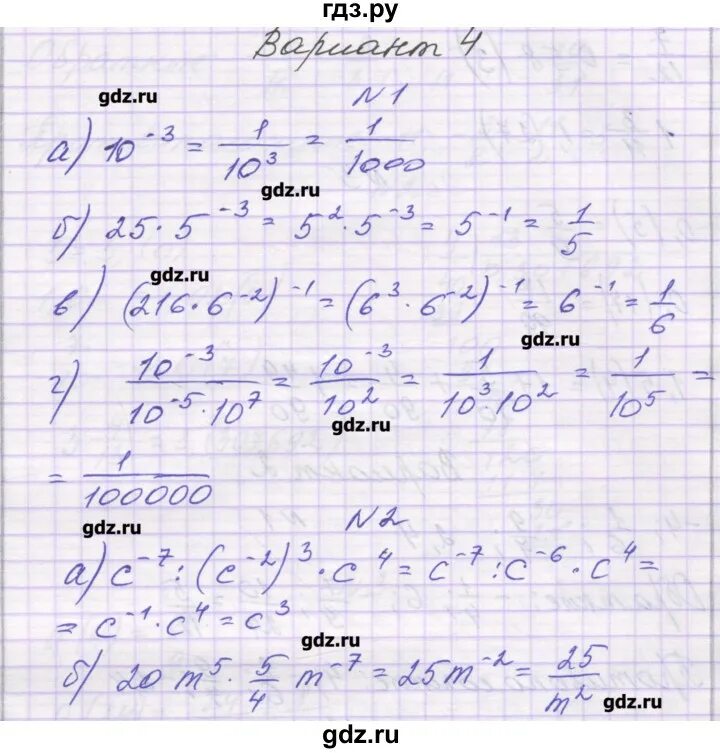 гдз.ру
Вариант 4
gdz.ru
N1
а) 10⁻³ = 1/10³ = 1/1000
gdz.ru
б) 25 · 5⁻³ = 5² · 5⁻³ = 5⁻¹ = 1/5
gdz.ru
в) (216 · 6⁻²)⁻¹ = (6³ · 6⁻²)⁻¹ = 6⁻¹ = 1/6
gdz.ru
г) 10⁻³/(10⁻⁵ · 10⁷) = 10⁻³/10² = 1/(10³ · 10²) = 1/10⁵ =
gdz.ru
= 1/100000
gdz.ru
N2
а) c⁻⁷ : (c⁻²)³ · c⁴ = c⁻⁷ : c⁻⁶ · c⁴ =
= c⁻¹ · c⁴ = c³
gdz.ru
б) 20 m⁵ · 5/4 m⁻⁷ = 25m⁻² = 25/m²
gdz.ru
gdz.ru